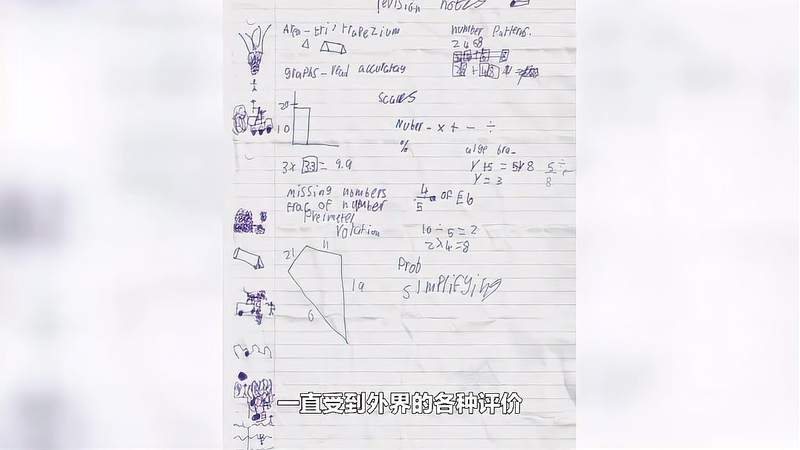 revision notes
Area - tri, trapezium
number patterns.
2 4 6 8
graphs - read accuratey
scales
20
10
Nuber - x + - ÷
%
alge bra
Y + 5 = 8
5
8
Y = 3
3x 3.3 = 9.9
missing numbers
frac of number
4/5 of £6
Preimeter
Volction
10 ÷ 5 = 2
2 x 4 = 8
21
11
19
6
Prob
simplifying
一直受到外界的各种评价